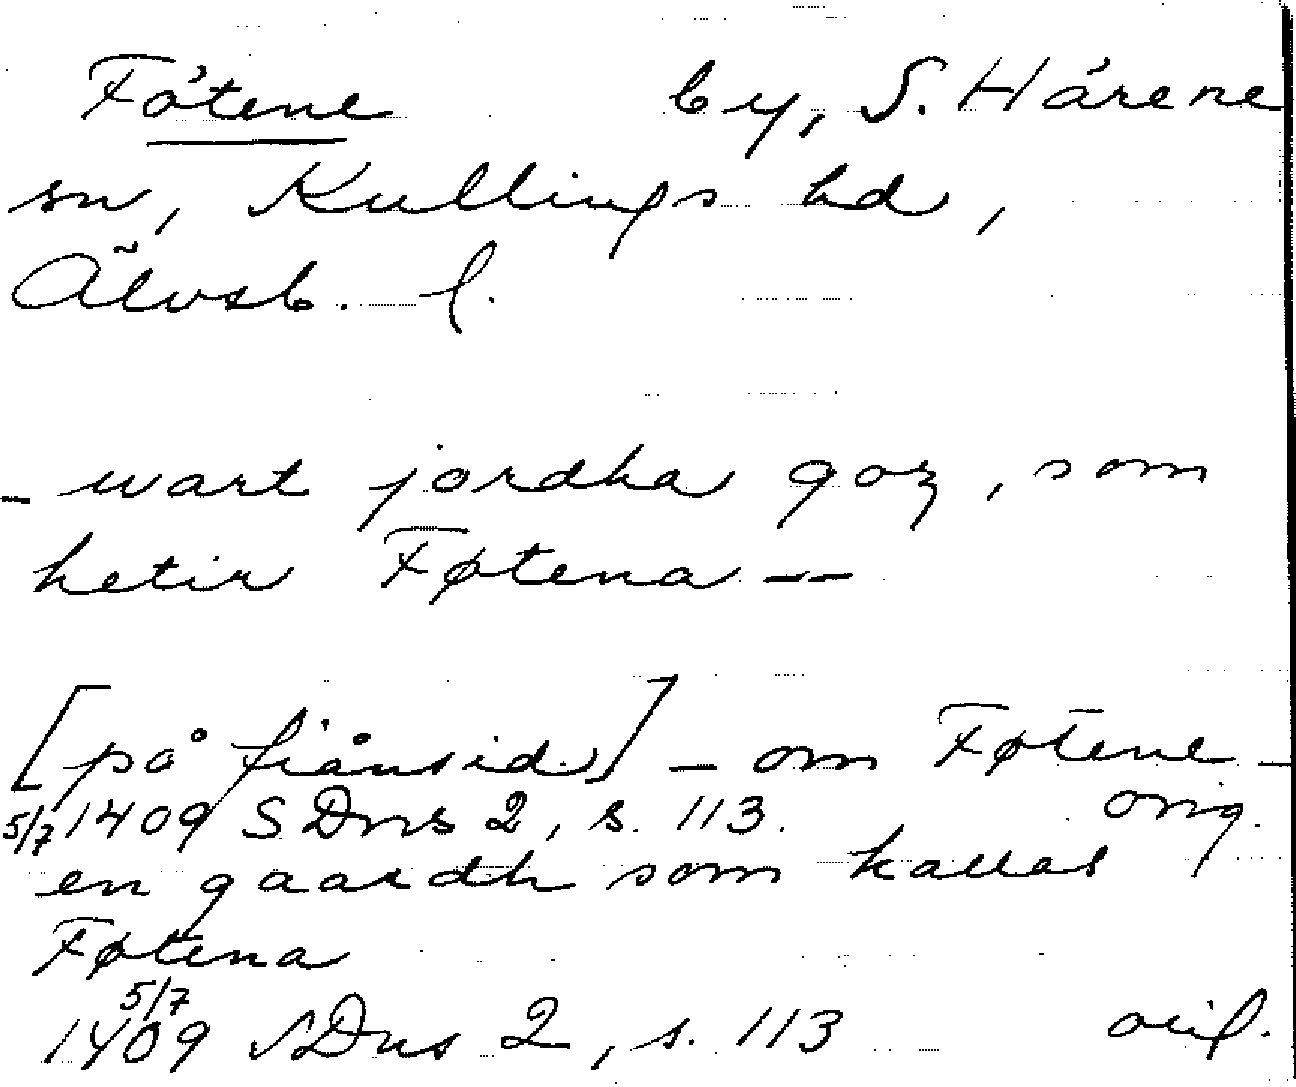 Fötene by, S. Härene
sn, Kullings hd,
Älvsb. l.
- wart jordha goz, som
hetir Føtena --
[på frånsid.] - om Føtene -
5/7 1409 SDns 2, s. 113. orig.
en gaardh som kallas
Føtena
5/7
1409 SDns 2, s. 113 orig.